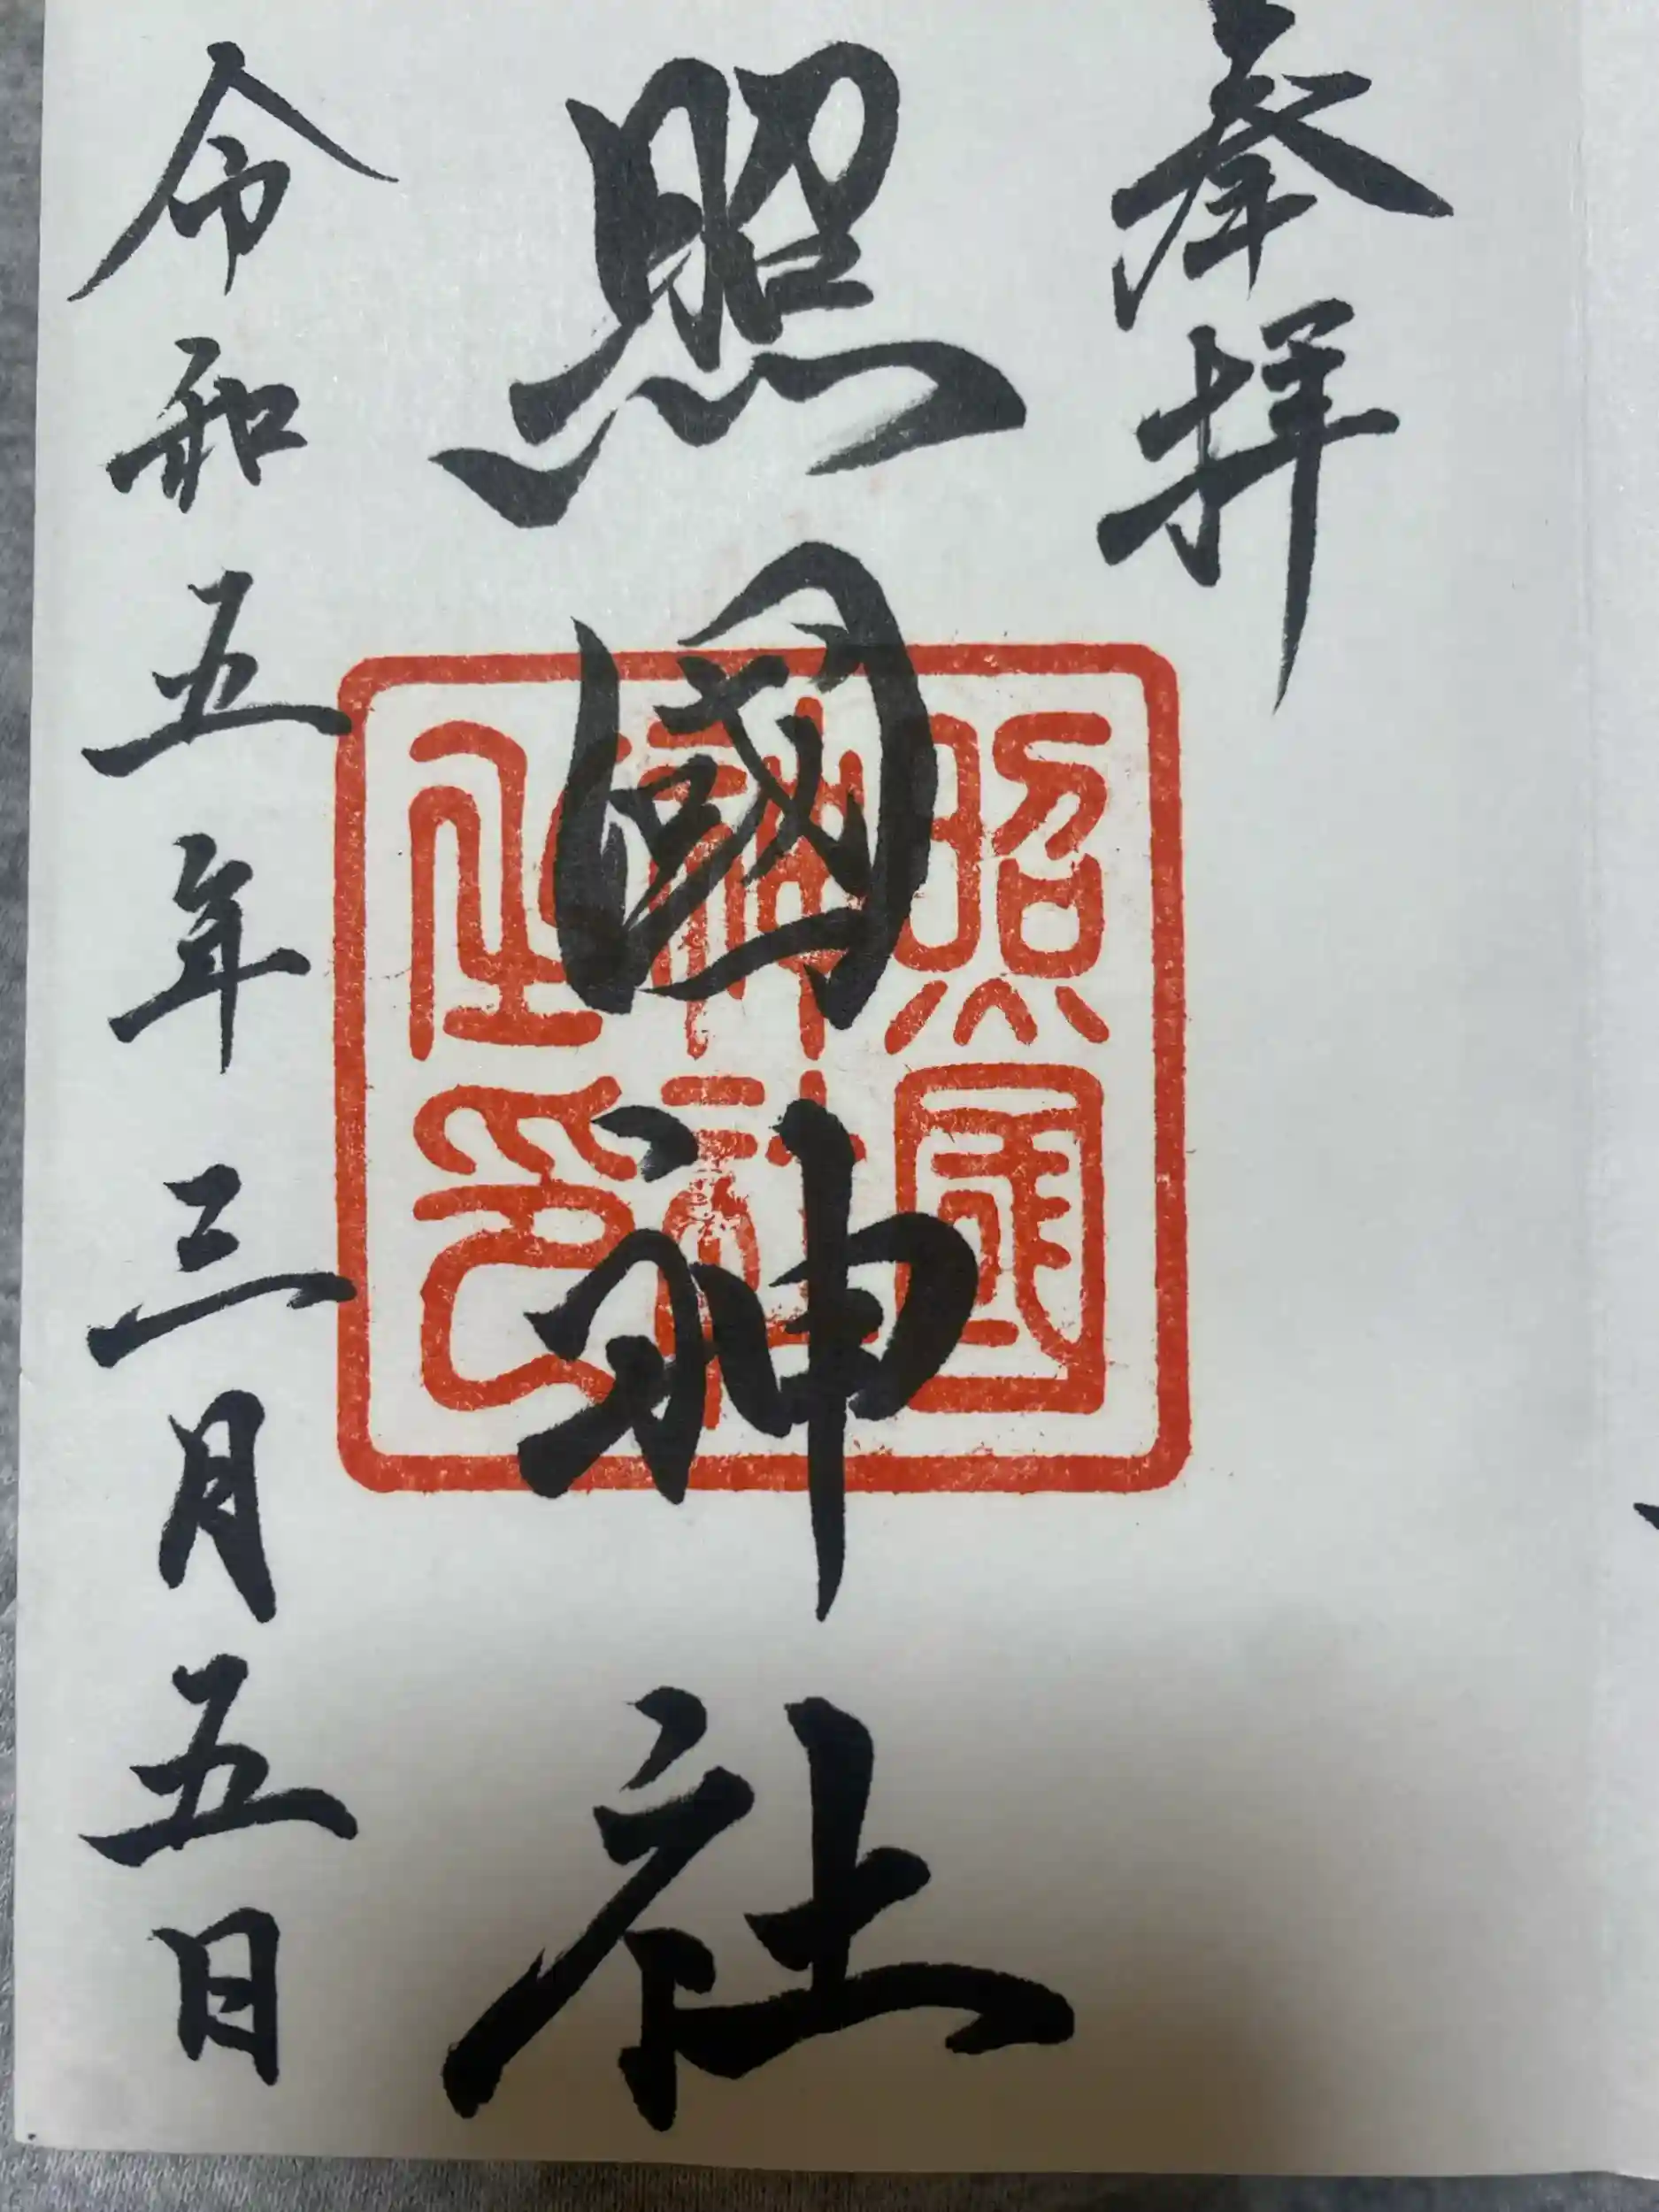 奉拝
照國神社
照国
神社
之印
令和五年三月五日